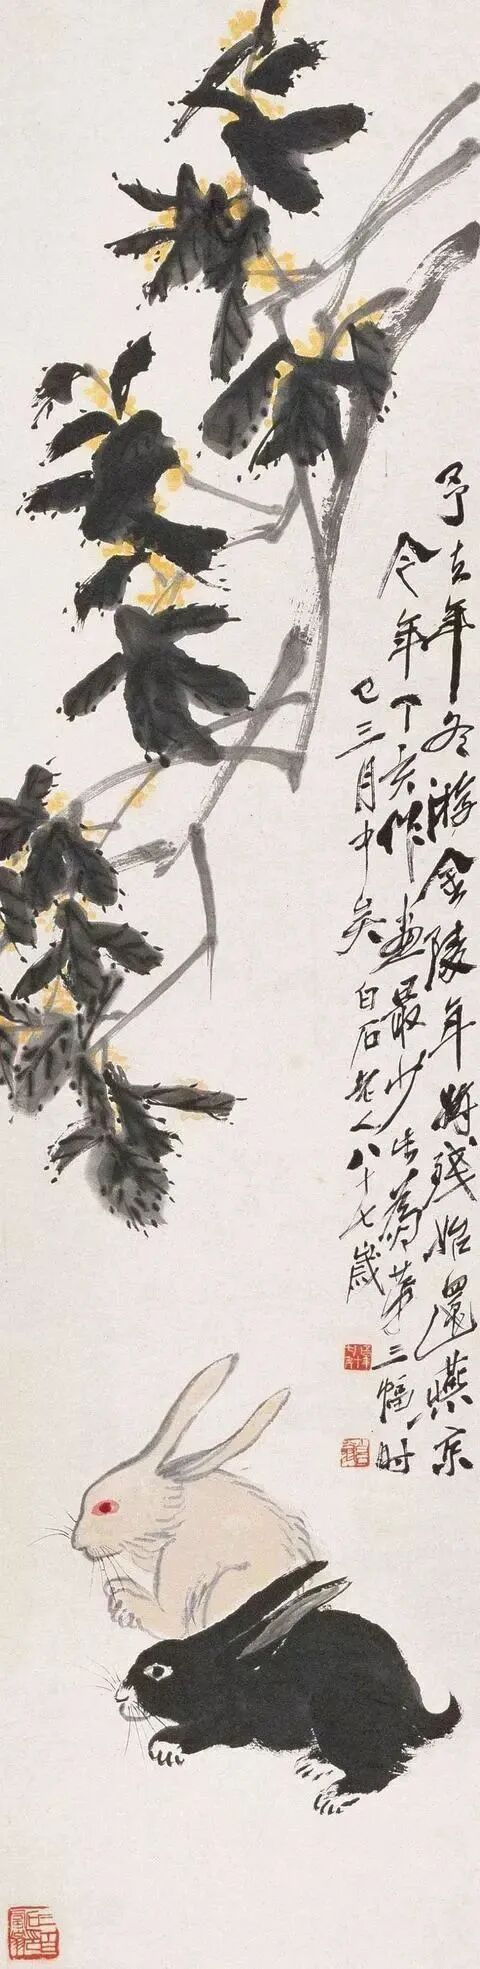 予去年冬游金陵年將残始還燕京
今年丁亥作畫最少此為第三幅时
已三月中矣白石老人八十七歲